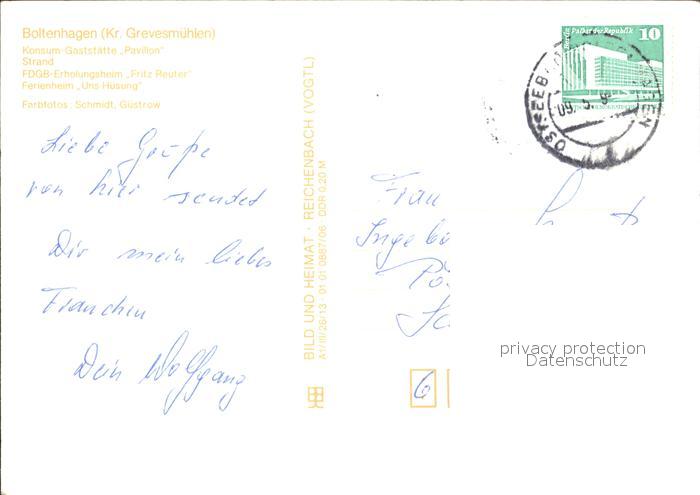 Boltenhagen (Kr. Grevesmühlen)
Konsum-Gaststätte „Pavillon"
Strand
FDGB-Erholungsheim „Fritz Reuter"
Ferienheim „Uns Hüsung"
Farbfotos: Schmidt, Güstrow
Liebe Grüße
von hier sendet
Dir mein liebes
Frauchen
Dein Wolfgang
BILD UND HEIMAT · REICHENBACH (VOGTL)
A1/III/26/13 · 01 01 0887/06 DDR 0,20 M
Berlin Palast der Republik 10
OSTSEEBAD BOLTENHAGEN
Frau
Ingebo
6
privacy protection
Datenschutz